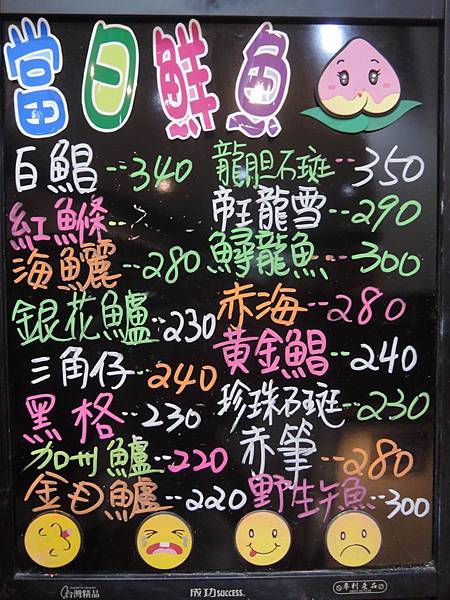 當日鮮魚
白鯧--340
紅鰷--
海鱺--280
銀花鱸--230
三角仔--240
黑格--230
加州鱸--220
金目鱸--220
龍胆石斑--350
帝王龍雪--290
鱘龍魚--300
赤海--280
黃金鯧--240
珍珠石斑--230
赤筆--280
野生午魚--300
台灣精品
成功 SUCCESS
專利產品